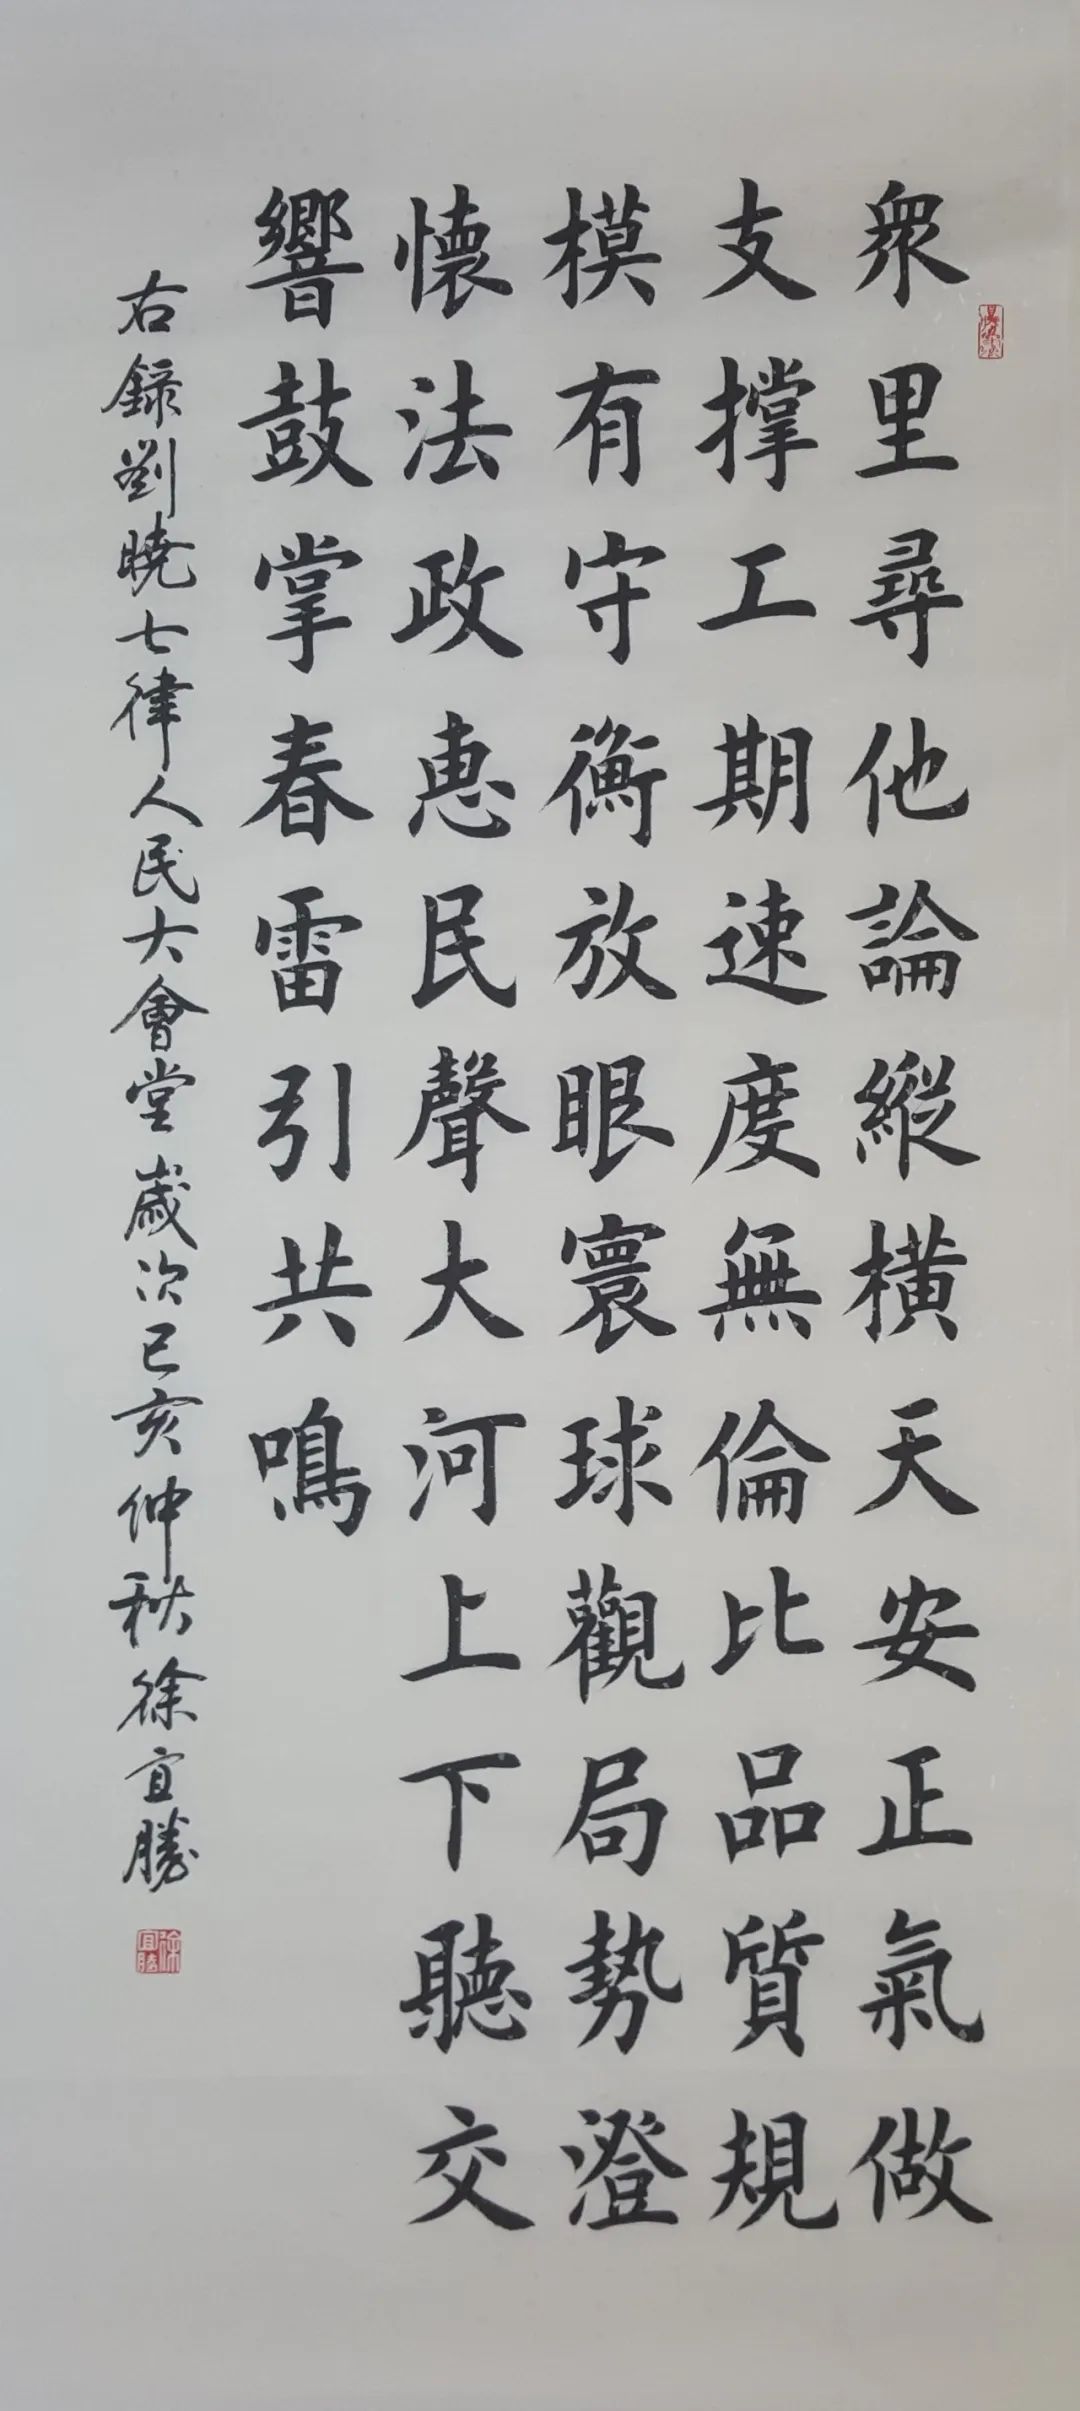 衆里尋他論縱橫天安正氣做
支撑工期速度無倫比品質規
模有守衡放眼寰球觀局勢澄
懷法政惠民聲大河上下聽交
響鼓掌春雷引共鳴
右錄劉曉七律人民大會堂歲次己亥仲秋徐宜勝
徐宜勝